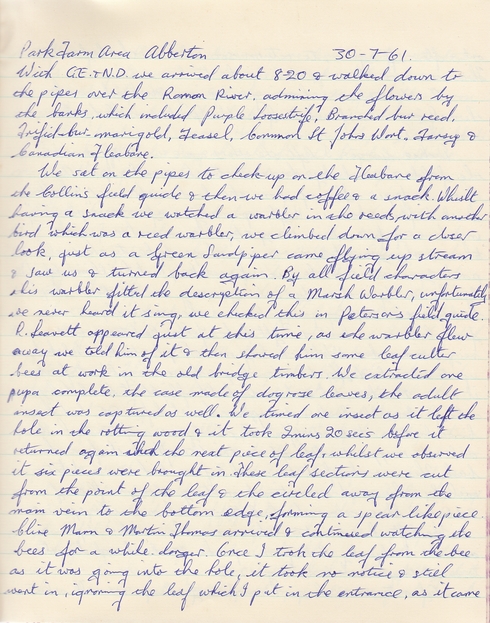 Park Farm Area Abberton 30-7-61.
With G.E.+N.D. we arrived about 8-20 & walked down to
the pipes over the Roman River, admiring the flowers by
the banks, which included Purple Loosestrife, Branched bur reed,
Trifid bur-marigold, Teasel, Common St Johns Wort, Tansy &
Canadian Fleabane.
We sat on the pipes to check up on the Fleabane from
the Collins field guide & then we had coffee & a snack. Whilst
having a snack we watched a warbler in the reeds, with another
bird which was a reed warbler, we climbed down for a closer
look, just as a Green Sandpiper came flying up stream
& saw us & turned back again. By all field characters
this warbler fitted the description of a Marsh Warbler, unfortunately
we never heard it sing, we checked this in Peterson's field guide.
R. Leavett appeared just at this time, as the warbler flew
away we told him of it & then showed him some leaf cutter
bees at work in the old bridge timbers. We extracted one
pupa complete, the case made of dogrose leaves, the adult
insect was captured as well. We timed one insect as it left the
hole in the rotting wood & it took 2 mins 20 secs before it
returned again with the next piece of leaf, whilst we observed
it six pieces were brought in. These leaf sections were cut
from the point of the leaf & the circled away from the
main vein to the bottom edge, forming a spear like piece.
Clive Mann & Martin Thomas arrived & continued watching the
bees for a while longer. Once I took the leaf from the bee
as it was going into the hole, it took no notice & still
went in, ignoring the leaf which I put in the entrance, as it came